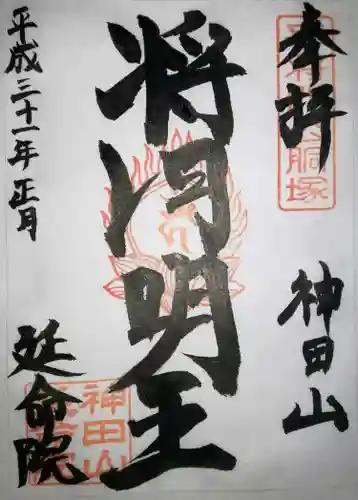 奉拝
神田山
将门明王
平成三十一年正月
延命院
胴塚
神田山